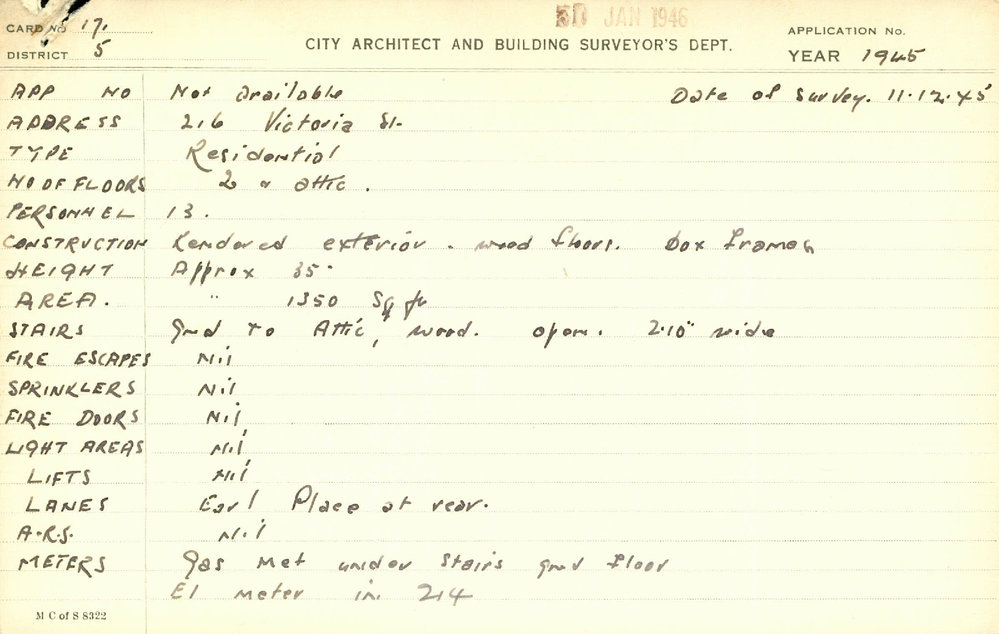 30 JAN 1946
CARD No 17.
DISTRICT 5
CITY ARCHITECT AND BUILDING SURVEYOR'S DEPT.
APPLICATION No.
YEAR 1945
APP NO Not available Date of Survey. 11.12.45
ADDRESS 216 Victoria St.
TYPE Residential
NO OF FLOORS 2 & attic.
PERSONNEL 13.
CONSTRUCTION Rendered exterior. wood floors. Box frames
HEIGHT Approx 35'
AREA. " 1350 Sq ft
STAIRS Grnd to Attic, wood. open. 2'10" wide
FIRE ESCAPES Nil
SPRINKLERS Nil
FIRE DOORS Nil
LIGHT AREAS Nil
LIFTS Nil
LANES Earl Place at rear.
A.R.S. Nil
METERS Gas Met under Stairs grnd floor
El meter in 214
M C of S 8322